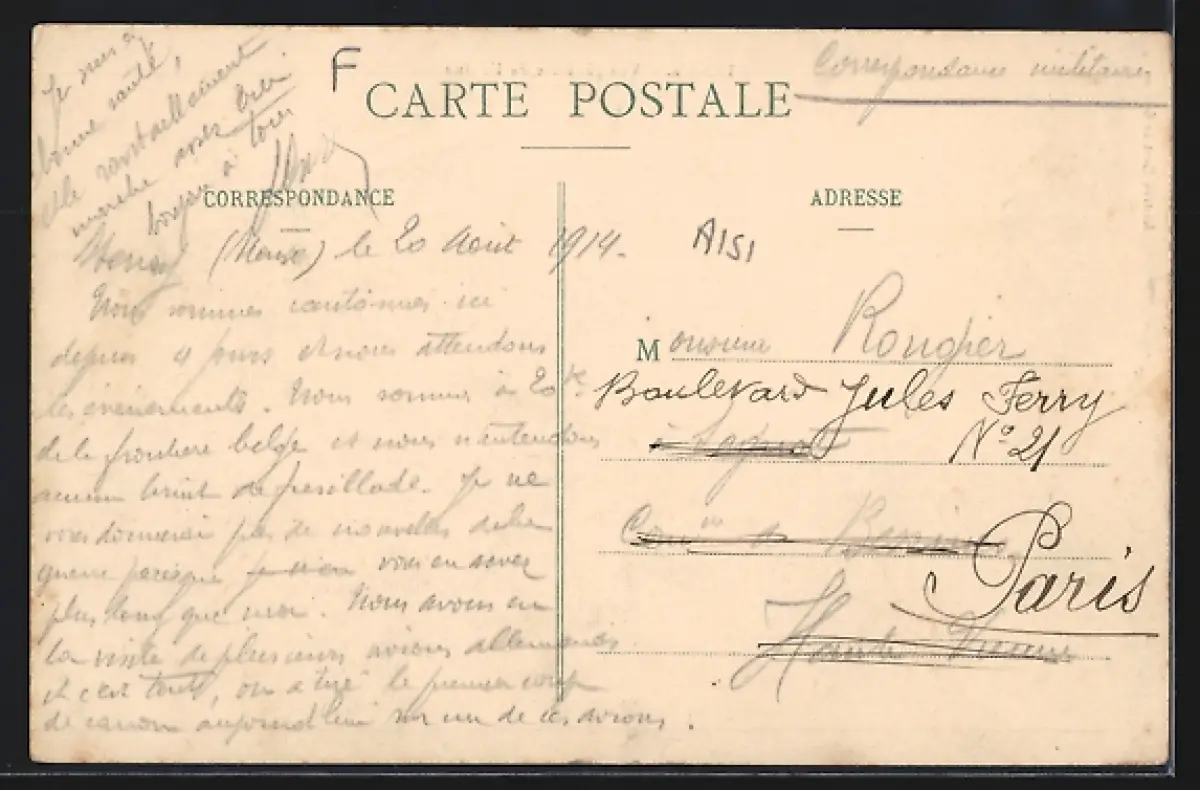 Je suis en
bonne santé,
le ravitaillement
marche assez bien.
bonjour à tous
F
CARTE POSTALE
Correspondance militaire
CORRESPONDANCE
ADRESSE
(Meuse) le 20 Août 1914.
A151
Nous sommes cantonnés ici
depuis 4 jours et nous attendons
les événements. Nous sommes à 20 k
de la frontière belge et nous n'entendons
aucun bruit de fusillade. Je ne
vous donnerai pas de nouvelles de la
guerre parceque vous en savez
plus long que moi. Nous avons eu
la visite de plusieurs avions allemands
et c'est tout, on a tiré le premier coup
de canon aujourd'hui sur un de ces avions.
Monsieur Rougier
Boulevard Jules Ferry
N° 21
Paris
Haute Vienne